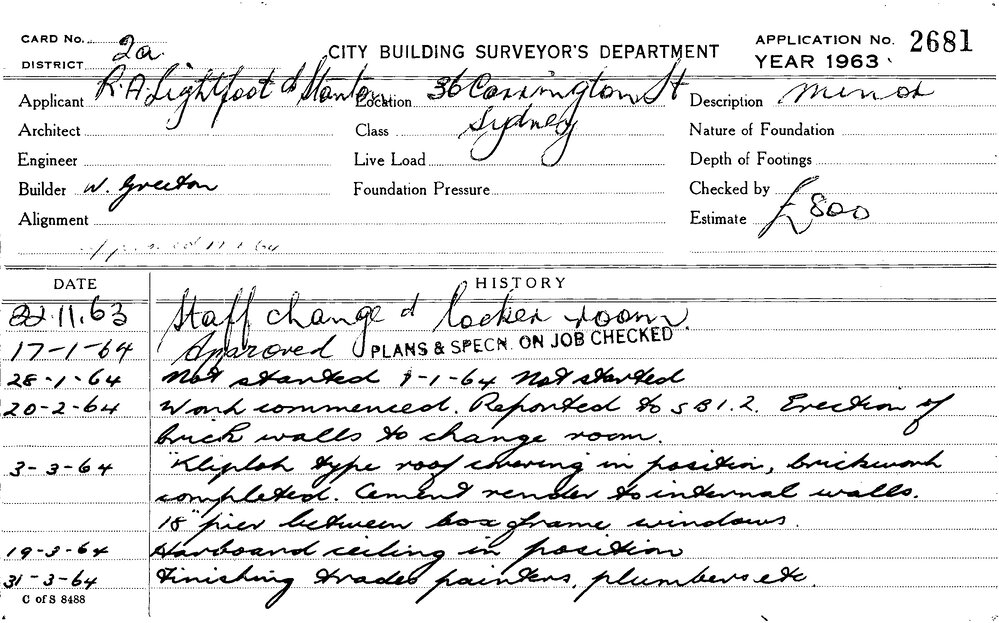 CARD No. 2a
CITY BUILDING SURVEYOR'S DEPARTMENT
APPLICATION No. 2681
DISTRICT
YEAR 1963
Applicant R.A. Lightfoot & Stanton
Location 36 Carrington St
Sydney
Description minor
Architect
Class
Nature of Foundation
Engineer
Live Load
Depth of Footings
Builder W. Greeton
Foundation Pressure
Checked by
Alignment
Estimate £800
DATE
HISTORY
22.11.63 Staff change & locker room.
17-1-64 Approved PLANS & SPECN. ON JOB CHECKED
28-1-64 Not started 9-1-64 Not started
20-2-64 Work commenced. Reported to SB1.2. Erection of
brick walls to change room.
3-3-64 "Kliplok type roof covering in position, brickwork
completed. Cement render to internal walls.
18" pier between box frame windows.
19-3-64 Harboard ceiling in position
31-3-64 Finishing trades painters, plumbers etc.
C of S 8488